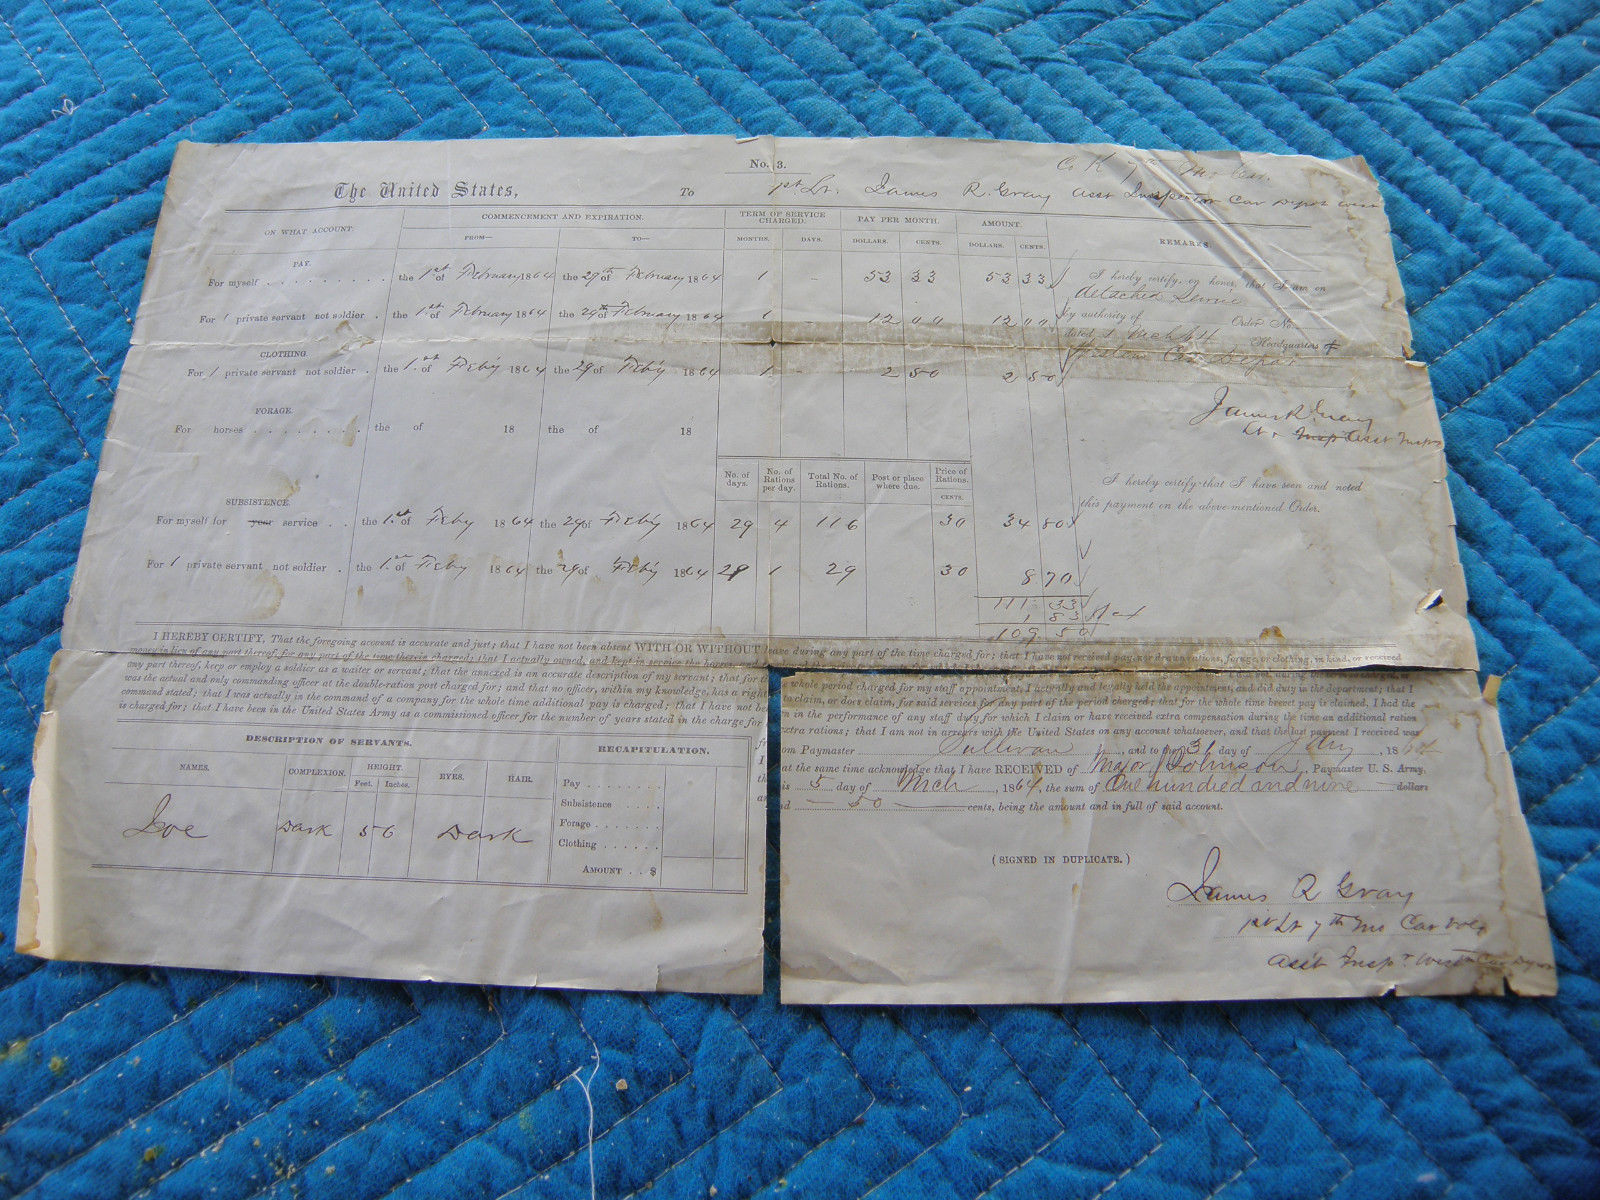 No. 3.
Co K 7th Mo Cav.
The United States, To 1st Lt. James R. Gray Asst Inspector Cav Depot West
ON WHAT ACCOUNT. COMMENCEMENT AND EXPIRATION. TERM OF SERVICE CHARGED. PAY PER MONTH. AMOUNT. REMARKS.
FROM— TO— MONTHS. DAYS. DOLLARS. CENTS. DOLLARS. CENTS.
PAY.
For myself . . . . . . . . the 1st of February 1864 the 29th of February 1864 1 - 53 33 53 33
I hereby certify, on honor, that I am on
detached service
For 1 private servant not soldier . the 1st of February 1864 the 29th of February 1864 1 - 12 " " 12 " "
by authority of Order No.
dated 1 Mch 64 Headquarters
Western Cav Depot
CLOTHING.
For 1 private servant not soldier . the 1st of Feby 1864 the 29 of Feby 1864 1 - 2 50 2 50
James R. Gray
Lt. Insp Asst Inspr
FORAGE.
For horses . . . . . . . . . the of 18 the of 18
No. of days. No. of Rations per day. Total No. of Rations. Post or place where due. Price of Rations.
CENTS.
I hereby certify that I have seen and noted
this payment on the above-mentioned Order.
SUBSISTENCE.
For myself for your service . . the 1st of Feby 1864 the 29 of Feby 1864 29 4 116 30 34 80
For 1 private servant not soldier . the 1st of Feby 1864 the 29 of Feby 1864 29 1 29 30 8 70
111 33
1 83
109 50
I HEREBY CERTIFY, That the foregoing account is accurate and just; that I have not been absent WITH OR WITHOUT leave during any part of the time charged for; that I have not received pay, nor drawn rations, forage, or clothing, in kind, or received
money in lieu of any part thereof, for any part of the time therein charged; that I actually owned, and kept in service the horses
any part thereof, keep or employ a soldier as a waiter or servant; that the annexed is an accurate description of my servant; that for
was the actual and only commanding officer at the double-ration post charged for; and that no officer, within my knowledge, has a right
whole period charged for my staff appointment, I actually and legally held the appointment, and did duty in the department; that I
command stated; that I was actually in the command of a company for the whole time additional pay is charged; that I have not
to claim, or does claim, for said services for any part of the period charged; that for the whole time brevet pay is claimed, I had the
is charged for; that I have been in the United States Army as a commissioned officer for the number of years stated in the charge for
in the performance of any staff duty for which I claim or have received extra compensation during the time an additional ration
extra rations; that I am not in arrears with the United States on any account whatsoever, and that the last payment I received was
om Paymaster Sullivan, and to the 31 day of Jany, 1864
at the same time acknowledge that I have RECEIVED of Major Johnson, Paymaster U. S. Army,
is 5 day of Mch, 1864, the sum of One hundred and nine dollars
50 cents, being the amount and in full of said account.
DESCRIPTION OF SERVANTS. RECAPITULATION.
NAMES. COMPLEXION. HEIGHT. EYES. HAIR.
Feet. Inches.
Pay . . . . . . . .
Subsistence . . . .
Joe Dark 5 6 Dark
Forage . . . . . . .
Clothing . . . . . .
AMOUNT . . $
(SIGNED IN DUPLICATE.)
James R Gray
1st Lt 7th Mo Cav Vols
Asst Inspr Westn Cav Depot